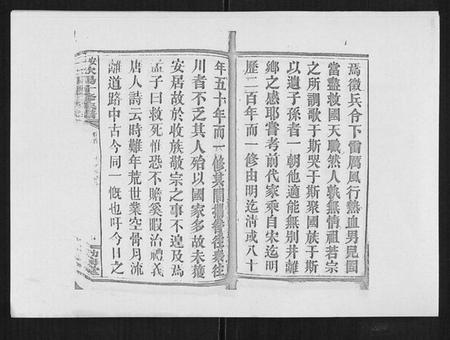 焉徵兵令下雷厲風行熱血男兒固
當盡救國天職然人孰無情祖若宗
之所謂歌于斯哭于斯聚國族于斯
以遺子孫者一朝他適能無別井離
鄉之感耶嘗考前代家乘自宋迄明
歷二百年而一修由明迄清或八十
年五十年而一修其間
川者不乏其人殆以國家多故未獲
安居故於收族敬宗之事不遑及焉
孟子曰救死惟恐不贍奚暇治禮義
唐人詩云時難年荒世業空骨肉流
離道路中古今同一慨也吁今日之